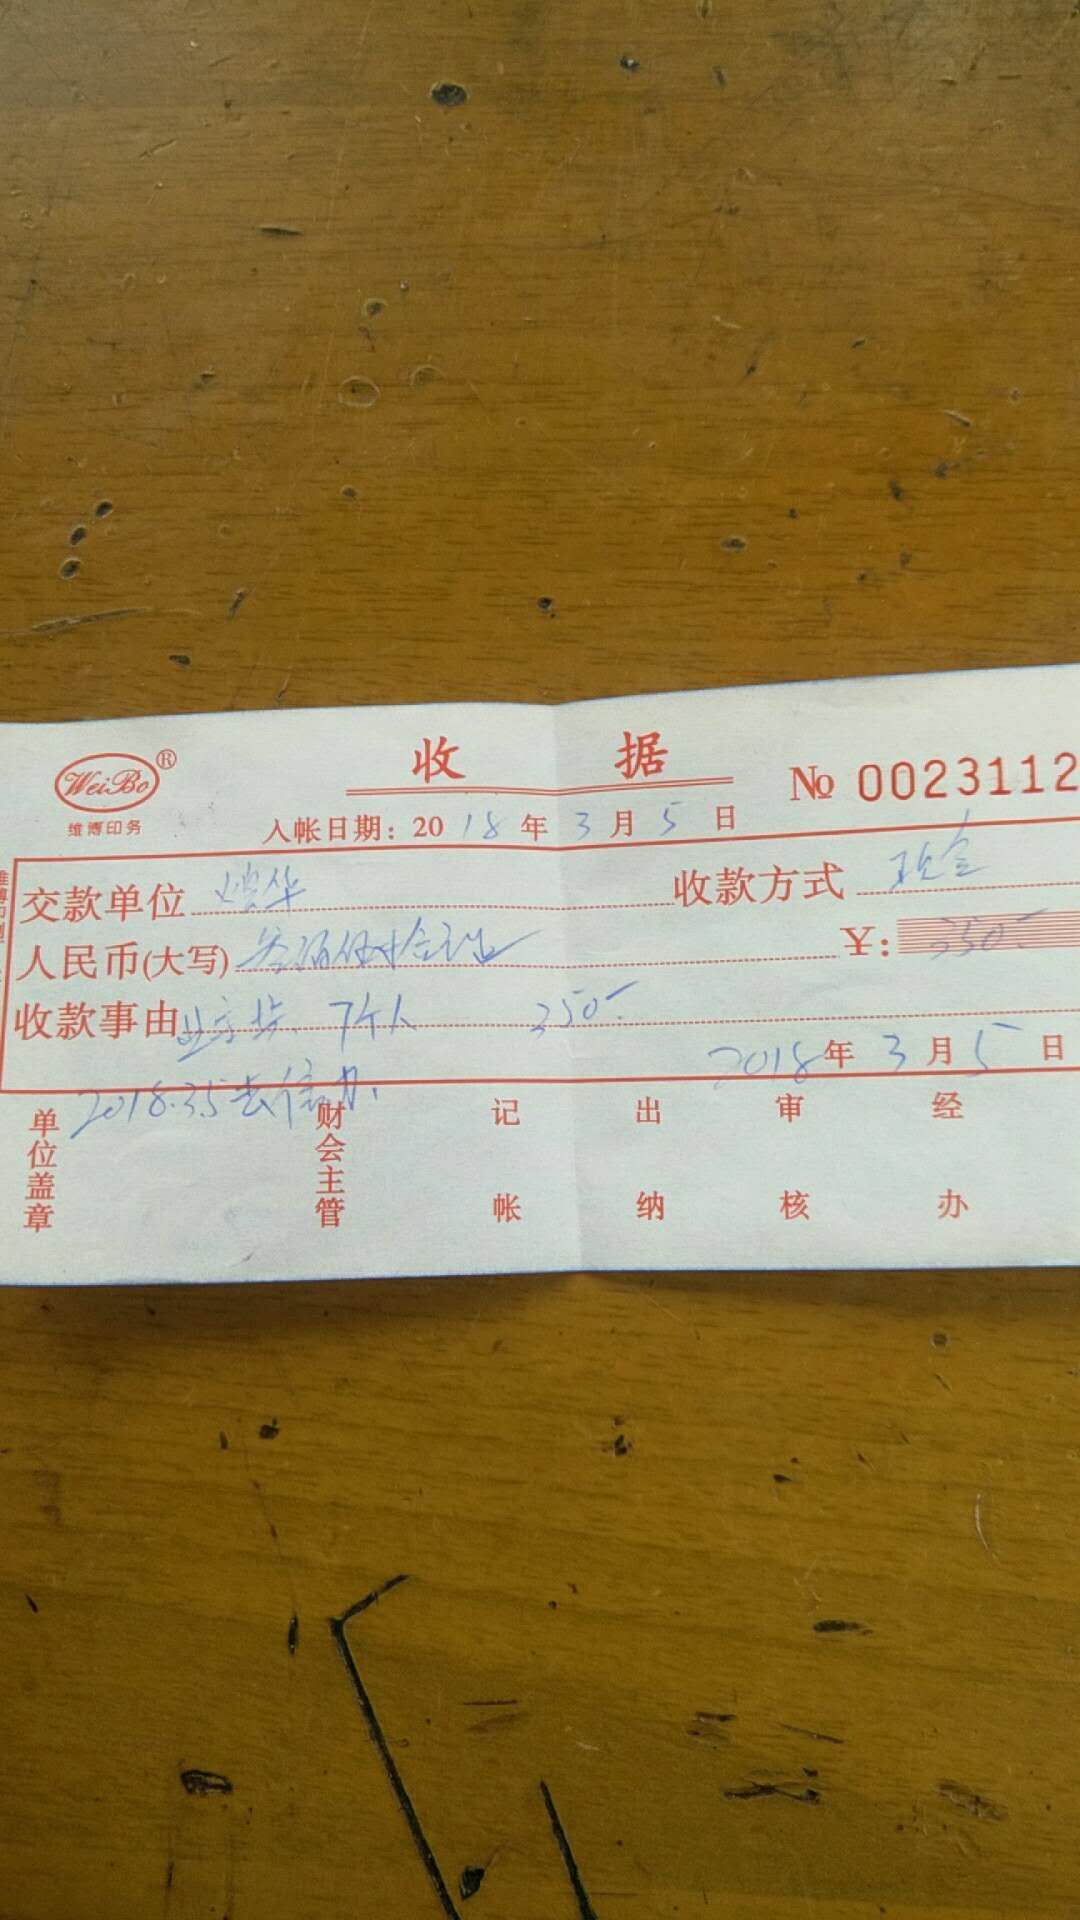 WeiBo®
维博印务
收 据
№ 0023112
入帐日期: 2018 年 3 月 5 日
交款单位 收款方式 现金
人民币(大写) 叁佰伍拾元 ¥: 350.-
收款事由 7个人 350.-
2018年 3 月 5 日
2018.3.5去信办.
单位盖章 财会主管 记帐 出纳 审核 经办